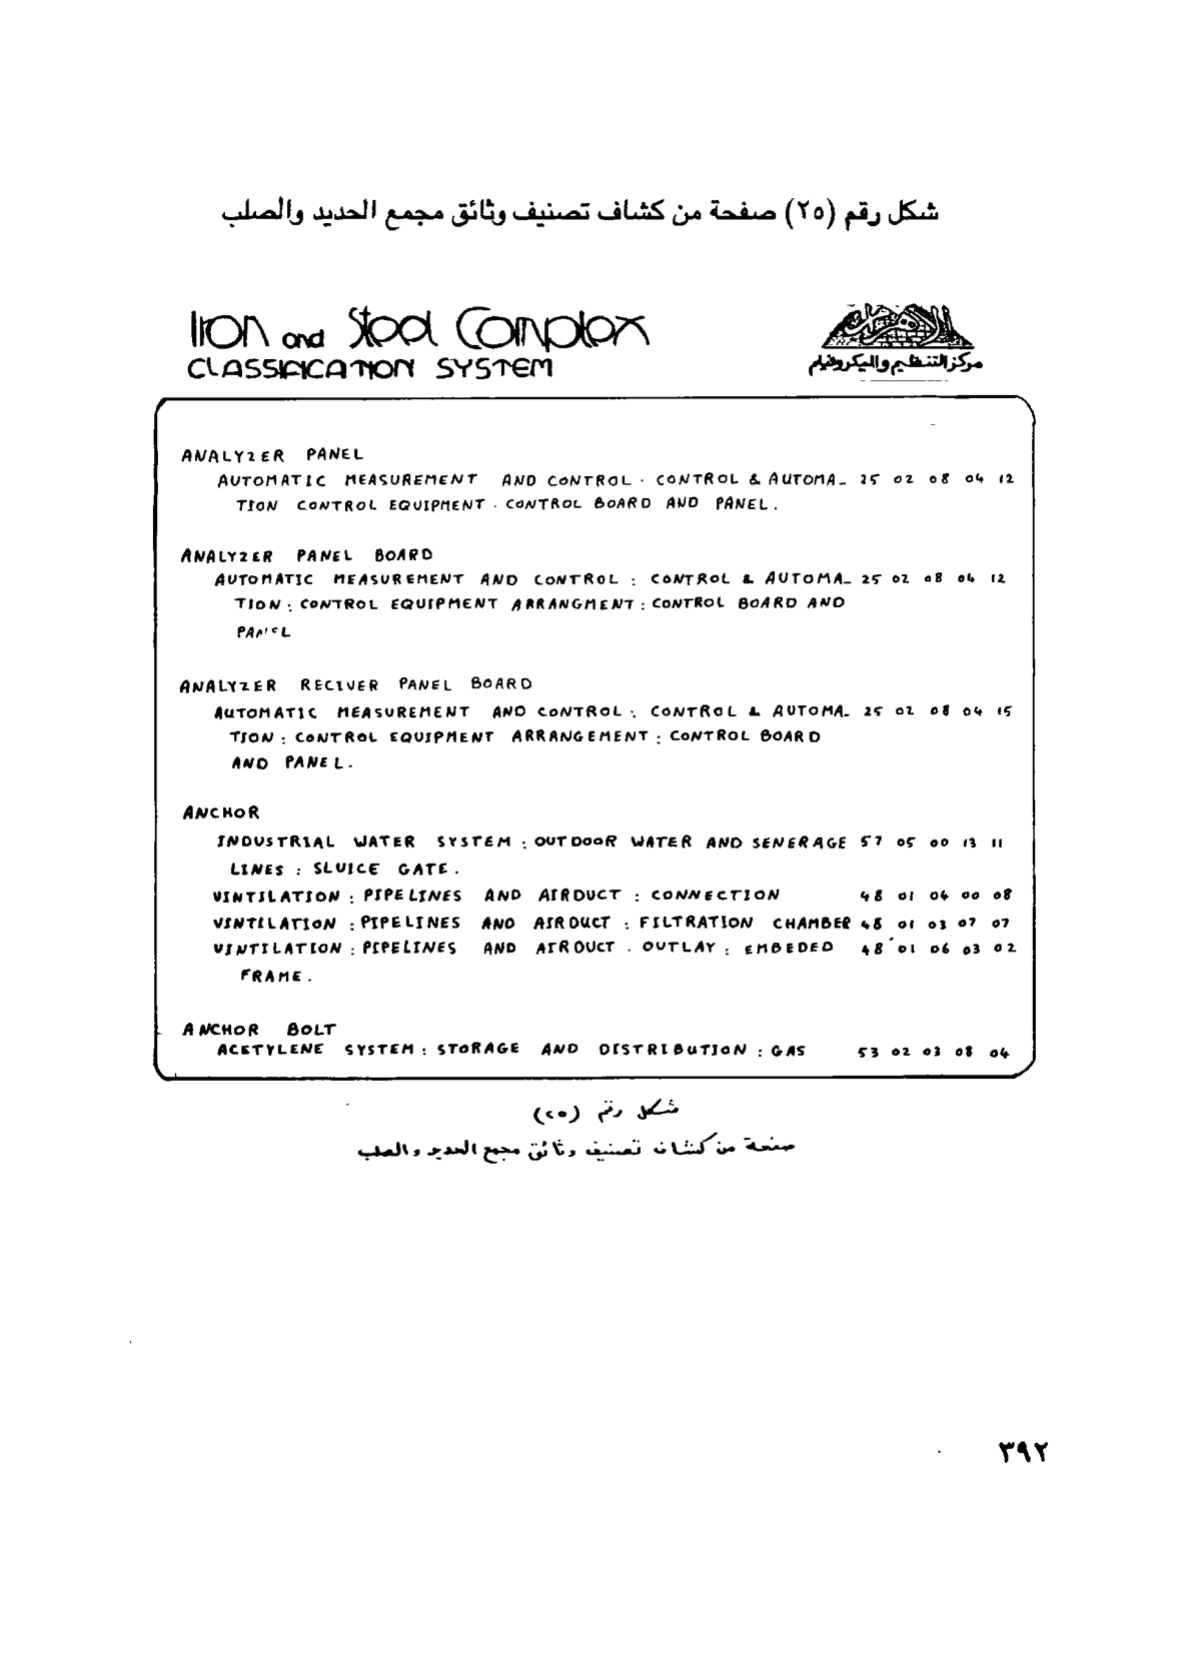 شكل رقم (٢٥) صفحة من كشاف تصنيف وثائق مجمع الحديد والصلب
Iron and Steel Complex
CLASSIFICATION SYSTEM
مركز التنظيم والميكروفيلم
ANALYZER PANEL
AUTOMATIC MEASUREMENT AND CONTROL . CONTROL & AUTOMA_ 25 02 08 04 12
TION CONTROL EQUIPMENT . CONTROL BOARD AND PANEL.
ANALYZER PANEL BOARD
AUTOMATIC MEASUREMENT AND CONTROL : CONTROL & AUTOMA_ 25 02 08 04 12
TION : CONTROL EQUIPMENT ARRANGMENT : CONTROL BOARD AND
PANEL
ANALYZER RECIVER PANEL BOARD
AUTOMATIC MEASUREMENT AND CONTROL : CONTROL & AUTOMA_ 25 02 08 04 15
TION : CONTROL EQUIPMENT ARRANGEMENT : CONTROL BOARD
AND PANEL.
ANCHOR
INDUSTRIAL WATER SYSTEM : OUTDOOR WATER AND SENERAGE 57 05 00 13 11
LINES : SLUICE GATE.
VINTILATION : PIPELINES AND AIRDUCT : CONNECTION 48 01 04 00 08
VINTILATION : PIPELINES AND AIRDUCT : FILTRATION CHAMBER 48 01 03 07 07
VINTILATION : PIPELINES AND AIRDUCT . OUTLAY : EMBEDED 48 01 06 03 02
FRAME.
ANCHOR BOLT
ACETYLENE SYSTEM : STORAGE AND DISTRIBUTION : GAS 53 02 03 08 04
شكل رقم (٢٥)
صفحة من كشاف تصنيف وثائق مجمع الحديد والصلب
٣٩٢